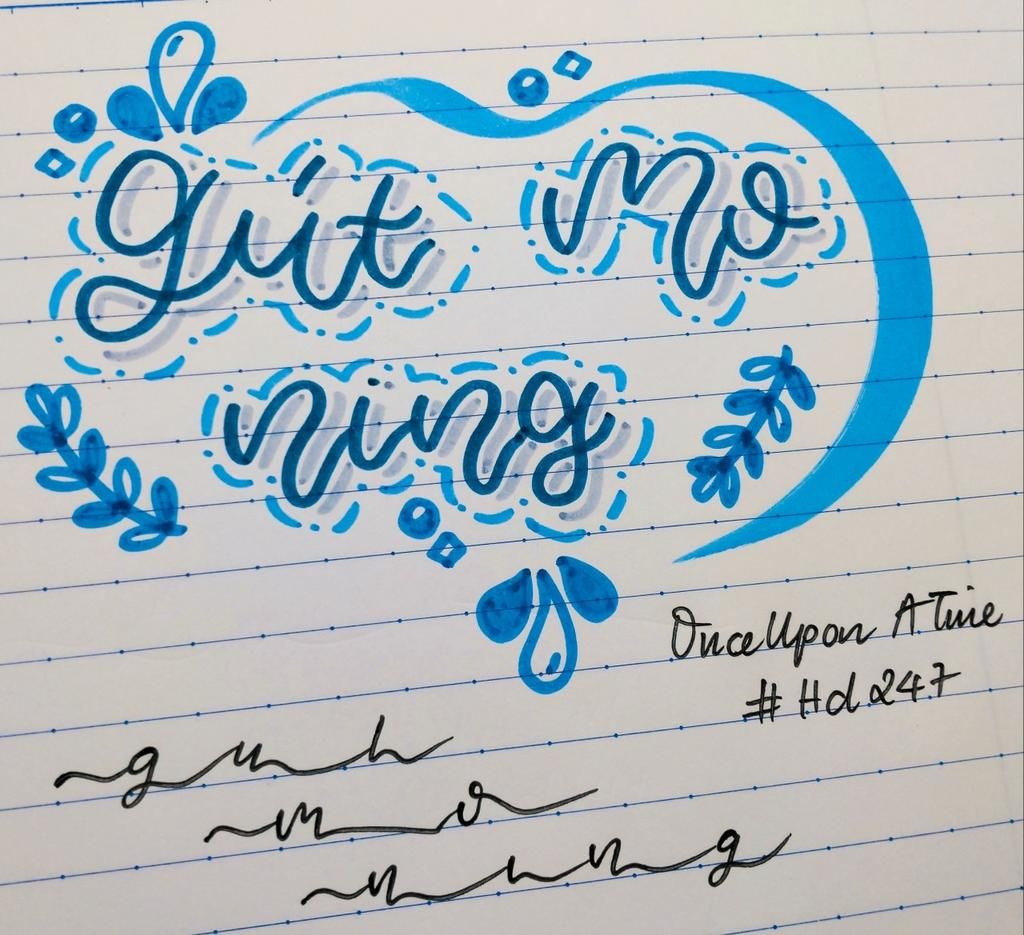 gút mo
ning
OnceUpon A Time
#Hd247
mo
ning